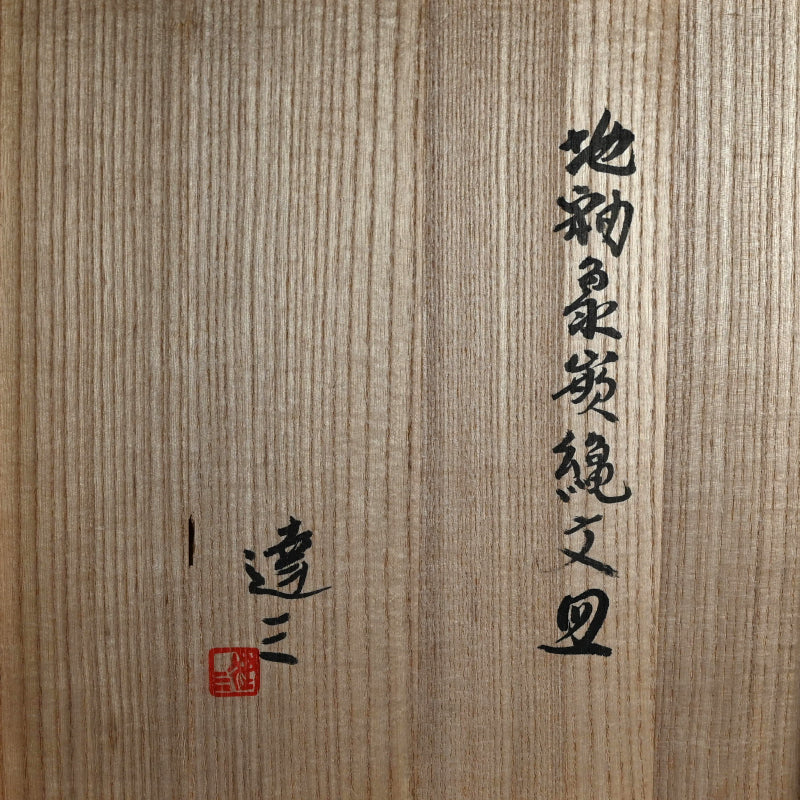 地釉象嵌縄文皿
達三